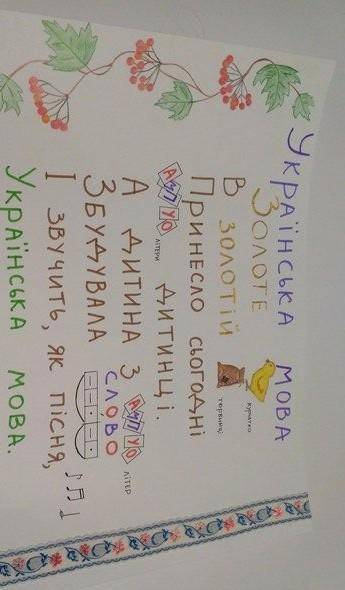 УКРАЇНСЬКА МОВА
ЗОЛОТЕ курчатко
В ЗОЛОТІЙ торбинці
ПРИНЕСЛО СЬОГОДНІ
літери ДИТИНЦІ.
А ДИТИНА З літер
ЗБУДУВАЛА СЛОВО
І ЗВУЧИТЬ, ЯК ПІСНЯ,
УКРАЇНСЬКА МОВА.